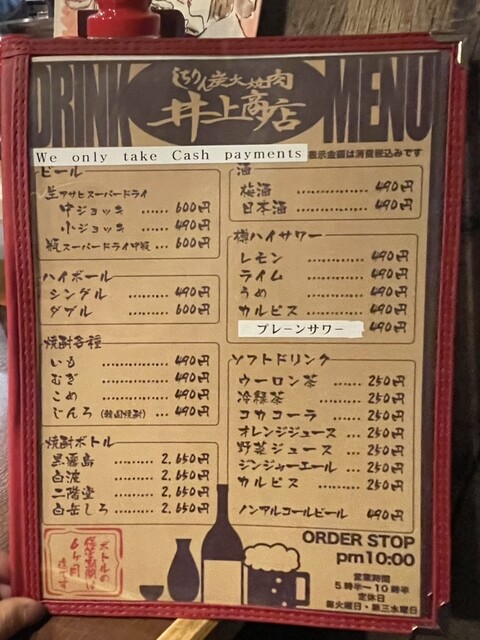 DRINK MENU
しちりん炭火焼肉
井上商店
We only take Cash payments
表示金額は消費税込みです
ビール
生アサヒスーパードライ
中ジョッキ …… 600円
小ジョッキ …… 490円
瓶スーパードライ中瓶 … 600円
ハイボール
シングル ……… 490円
ダブル ……… 600円
焼酎各種
いも ……… 490円
むぎ ……… 490円
こめ ……… 490円
じんろ(韓国焼酎) … 490円
焼酎ボトル
黒霧島 ……… 2,650円
白波 ……… 2,650円
二階堂 ……… 2,650円
白岳しろ ……… 2,650円
ボトルの
保管期間は
6ヶ月
迄です
酒
梅酒 ……… 490円
日本酒 ……… 490円
樽ハイサワー
レモン ……… 490円
ライム ……… 490円
うめ ……… 490円
カルピス ……… 490円
プレーンサワー 490円
ソフトドリンク
ウーロン茶 …… 250円
冷緑茶 ……… 250円
コカコーラ …… 250円
オレンジジュース … 250円
野菜ジュース … 250円
ジンジャーエール … 250円
カルピス ……… 250円
ノンアルコールビール 490円
ORDER STOP
pm10:00
営業時間
5時半〜10時半
定休日
毎火曜日・第三水曜日